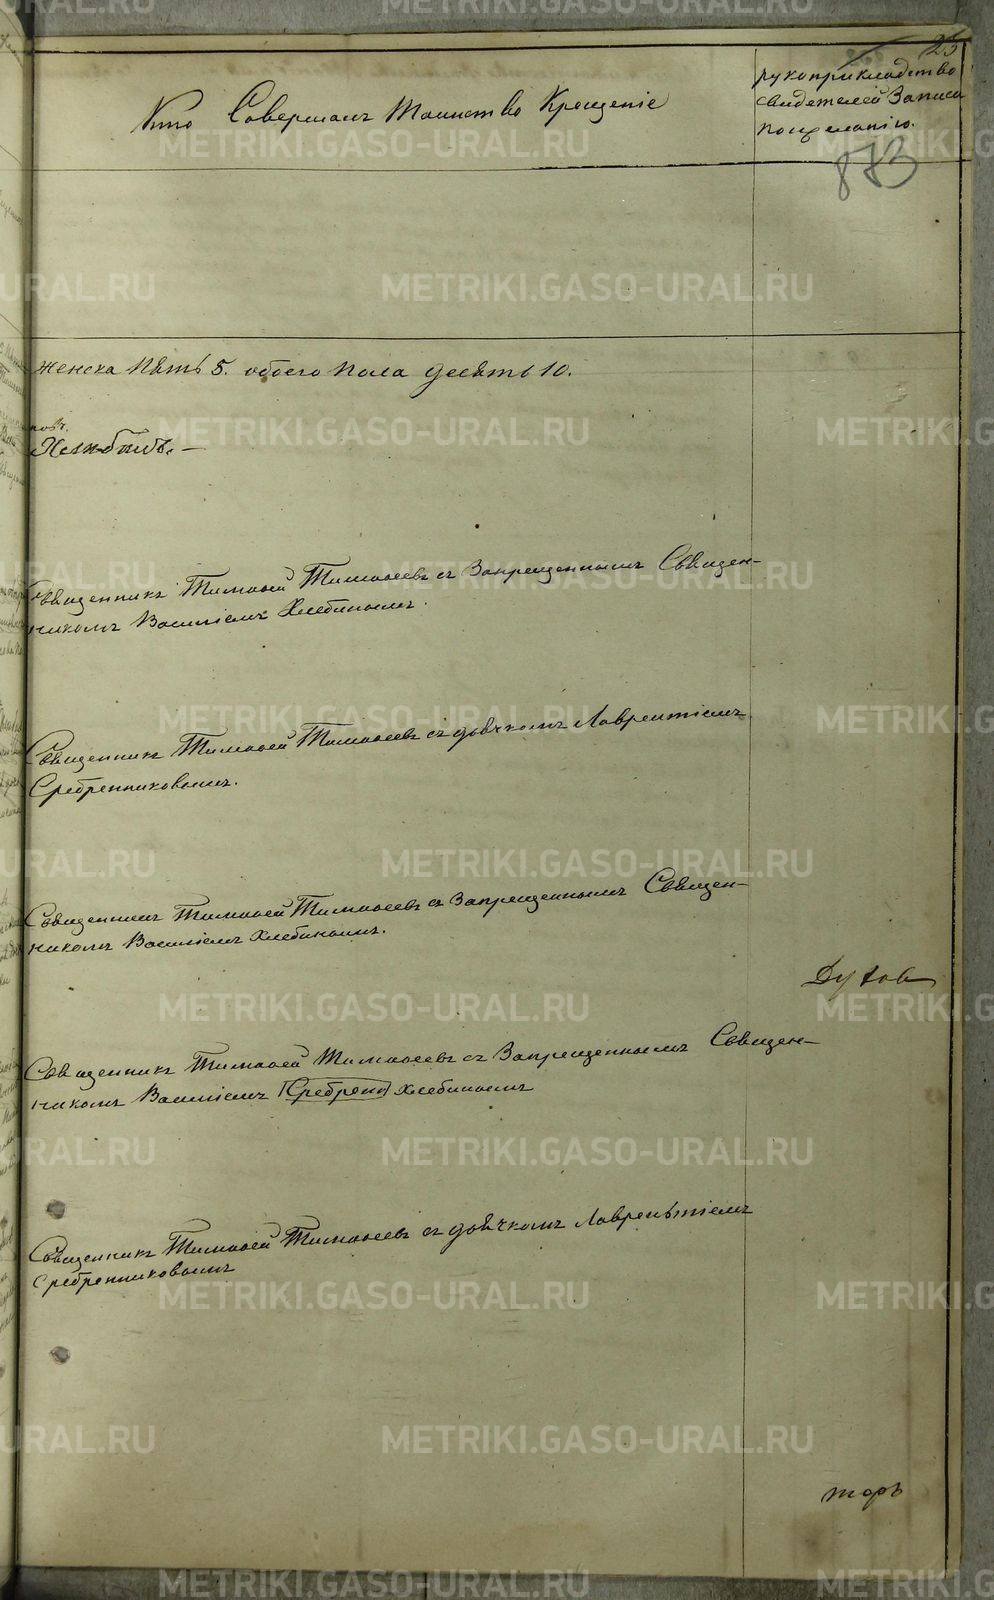 25
Кто Совершалъ Таинство Крещенiе
рукоприкладство
свидетелей Записи
по желанiю.
873
женска Пять 5. обоего Пола десять 10.
Не было. —
Священникъ Тимофей Тимофеевъ съ Запрещеннымъ Священ-
никомъ Василiемъ Хлебинымъ.
Священникъ Тимофей Тимофеевъ съ дьячкомъ Лаврентiемъ
Сребренниковымъ.
Священникъ Тимофей Тимофеевъ съ Запрещеннымъ Священ-
никомъ Василiемъ Хлебинымъ.
Духов
Священникъ Тимофей Тимофеевъ съ Запрещеннымъ Священ-
никомъ Василiемъ Сребрен Хлебинымъ
Священникъ Тимофей Тимофеевъ съ дьячкомъ Лаврентiемъ
Сребренниковымъ
торъ
METRIKI.GASO-URAL.RU